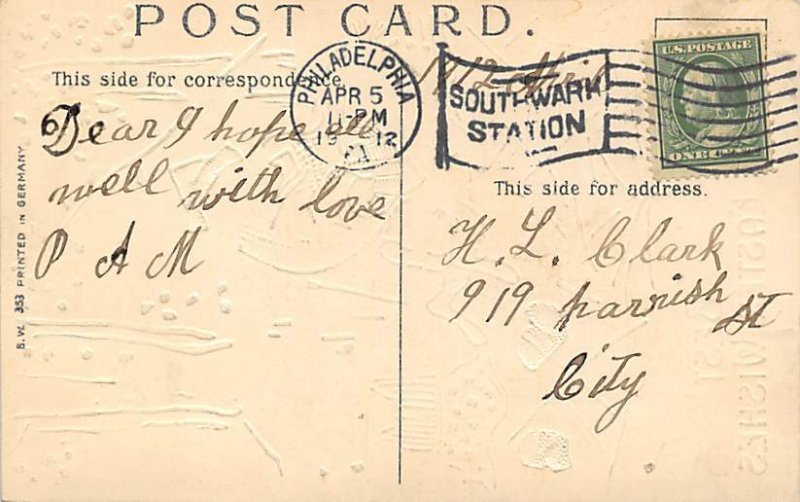 POST CARD.
This side for correspondence.
PHILADELPHIA
APR 5
11-PM
1912
PA
1912
SOUTHWARK
STATION
U.S. POSTAGE
ONE CENT
This side for address.
Dear I hope all
well with love
P A M
H. L. Clark
919 parrish St
City
B.W. 353 PRINTED IN GERMANY